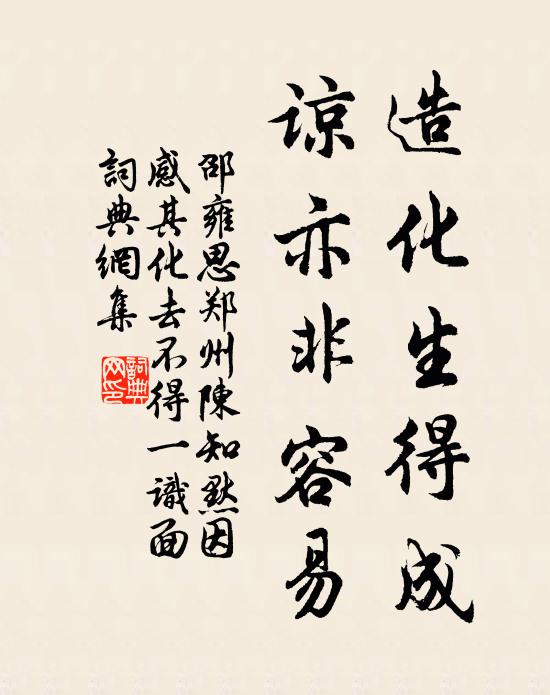 造化生得成
谅亦非容易
邵雍思郑州陳知默因
感其化去不得一識面
詞典網集
詞典网印